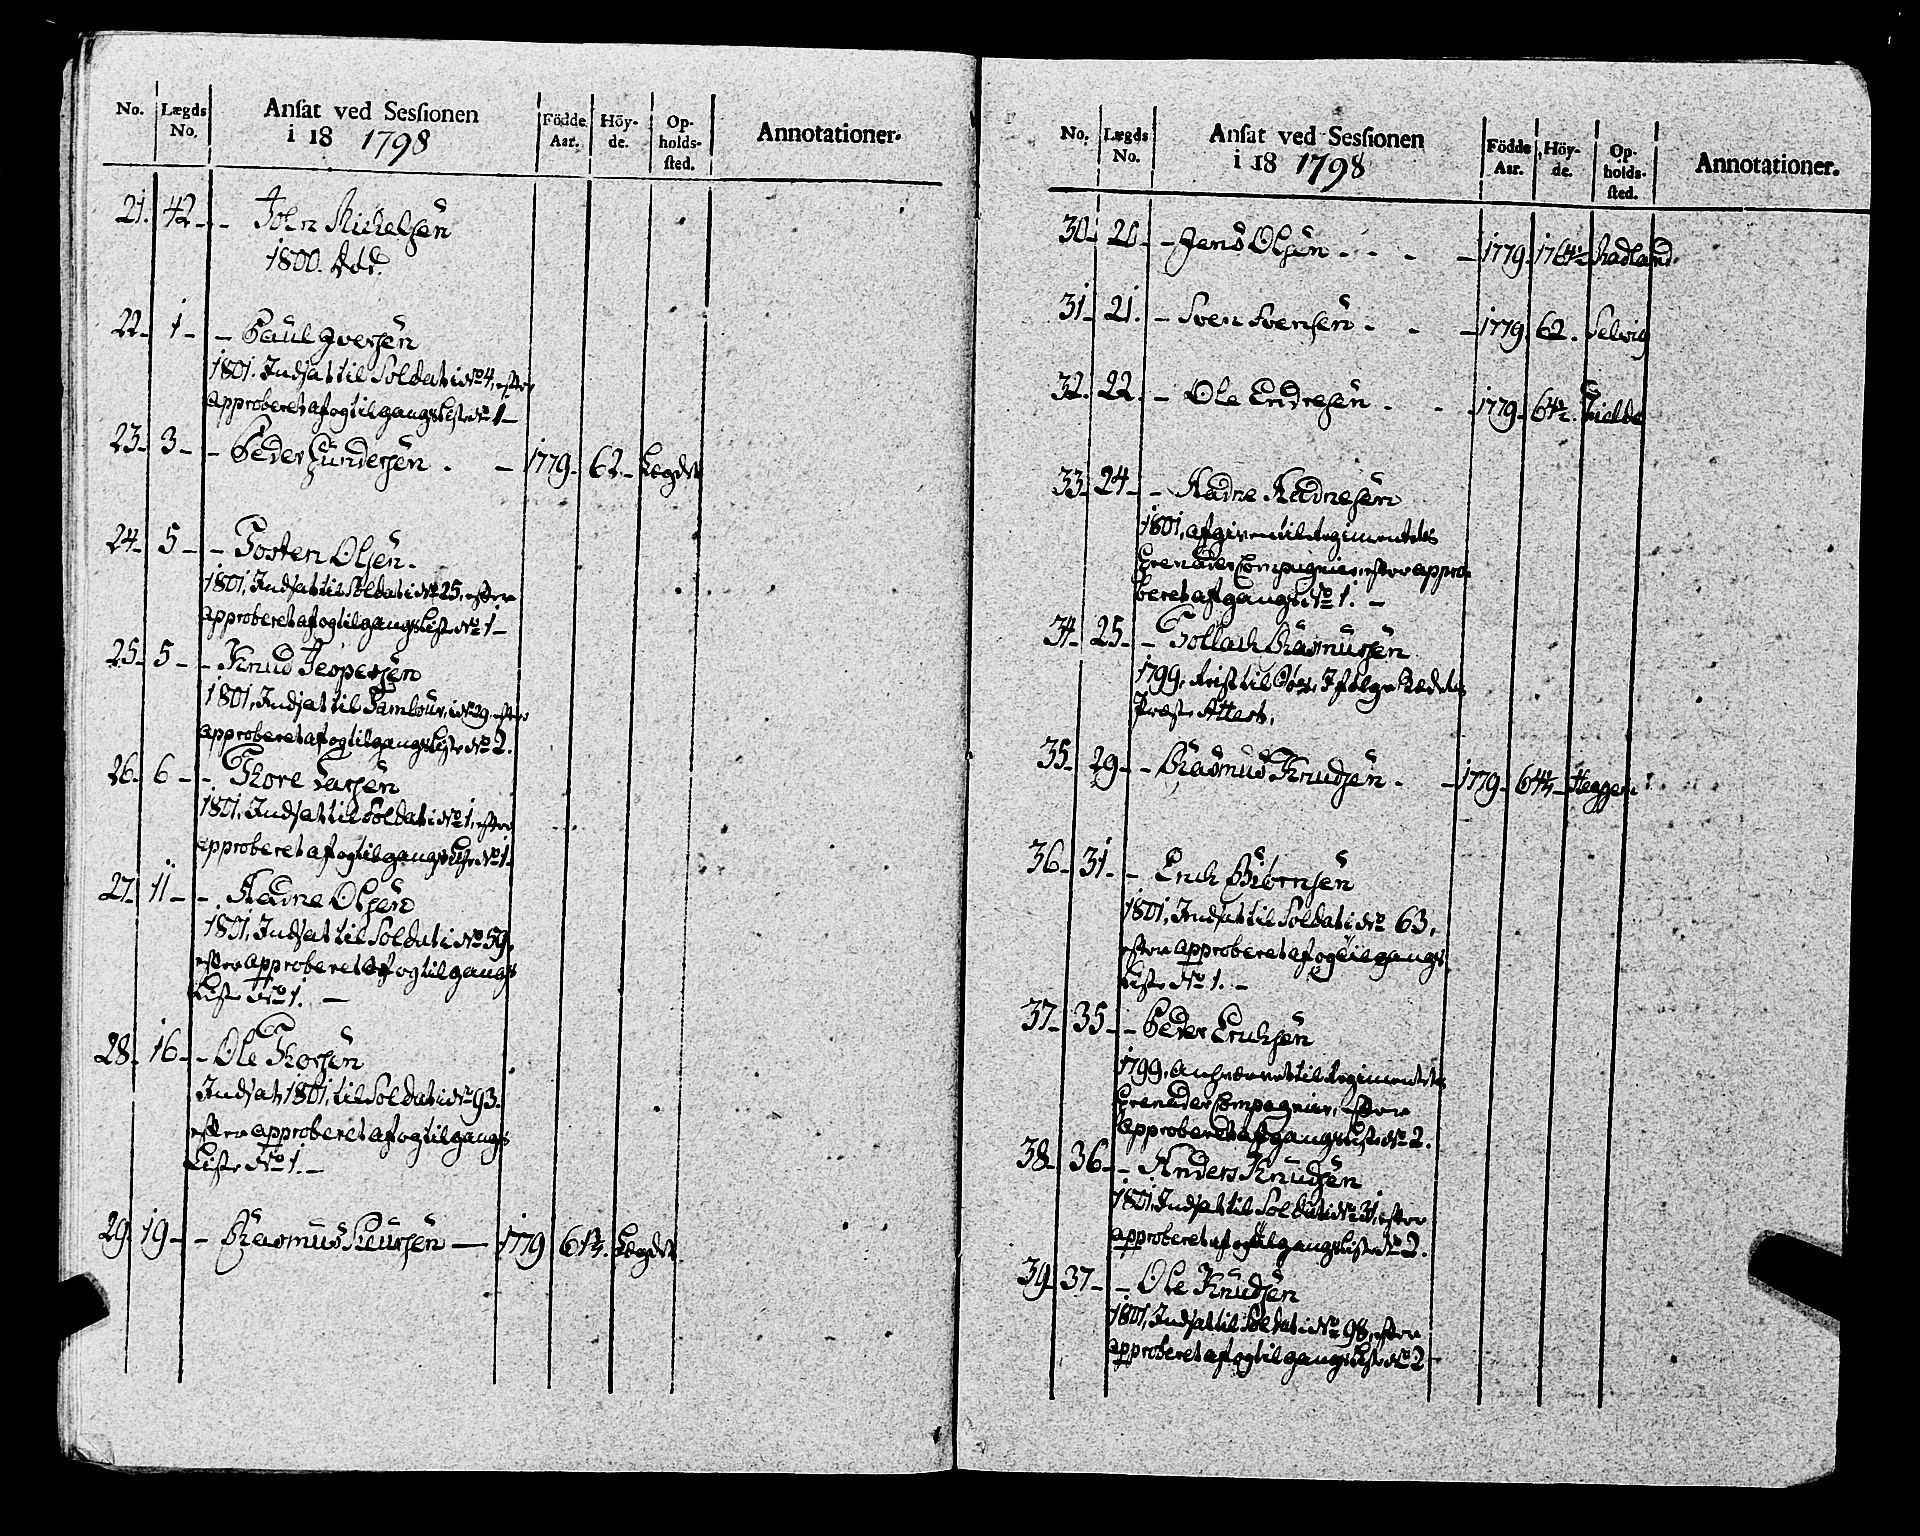 No. Lægds No. Ansat ved Sessionen i 18 1798 Födde Aar. Höyde. Opholdssted. Annotationer.
21. 42 - - John Michelsen
1800. Död.
22 - 1 - - Paul Iversen
1801. Indsat til Soldat i No 4, efter
approberet af og tilgangs Liste No 1 -
23 - 3 - - Peder Gundersen - - 1779. 62 - Lægdet
24 - 5 - - Tosten Olsen.
1801, Indsat til Soldat i No 25, efter
approberet af og tilgangs Liste No 1 -
25 - 5 - - Knud Jespersen
1801, Indsat til Tambour, i No 29, efter
approberet af og tilgangs Liste No 2.
26 - 6 - - Thore Larsen
1801, Indsat til Soldat i No 1, efter
approberet af og tilgangs Liste No 1.
27 - 11 - - Aadne Olsen
1801, Indsat til Soldat i No 59,
efter approberet af og tilgangs
Liste No 1. -
28 - 16 - - Ole Thorsen
Indsat, 1801, til Soldat i No 93.
efter approberet af og tilgangs
Liste No 1. -
29. 19 - - Rasmus - 1779 Lægdet
No. Lægds No. Ansat ved Sessionen i 18 1798 Födde Aar. Höyde. Opholdssted. Annotationer.
30 - 20 - - Jens Olsen - - - 1779. Radland.
31 - 21. - Sven Svensen - - - 1779. 62. Selvig
32 - 22 - - Ole Endresen - - - 1779 - 64½.
33 - 24 - - Aadne Aadnesen
1801, afgiven til Regimentets
Grenadeer Compagnier, efter appro-
beret afgangs No 1. -
34 - 25 - - Tollach Rasmussen
1799, Ifølge Stedets
Præste Attest.
35 - 29 - - Rasmus Knudsen - - 1779 - Heggen.
36 - 31 - - Erich Biørnsen
1801, Indsat til Soldat i No 63,
efter approberet af og tilgangs
Liste No 1. -
37 - 35 - - Peder Erichsen
1799, til Regimentets
Grenadeer Compagnier, efter
approberet afgangs Liste No 2.
38 - 36 - - Anders Knudsen
1801, Indsat til Soldat i No 31, efter
approberet af og tilgangs Liste No 2.
39 - 37 - - Ole Knudsen
1801, Indsat til Soldat i No 98, efter
approberet af og tilgangs Liste No 2 -